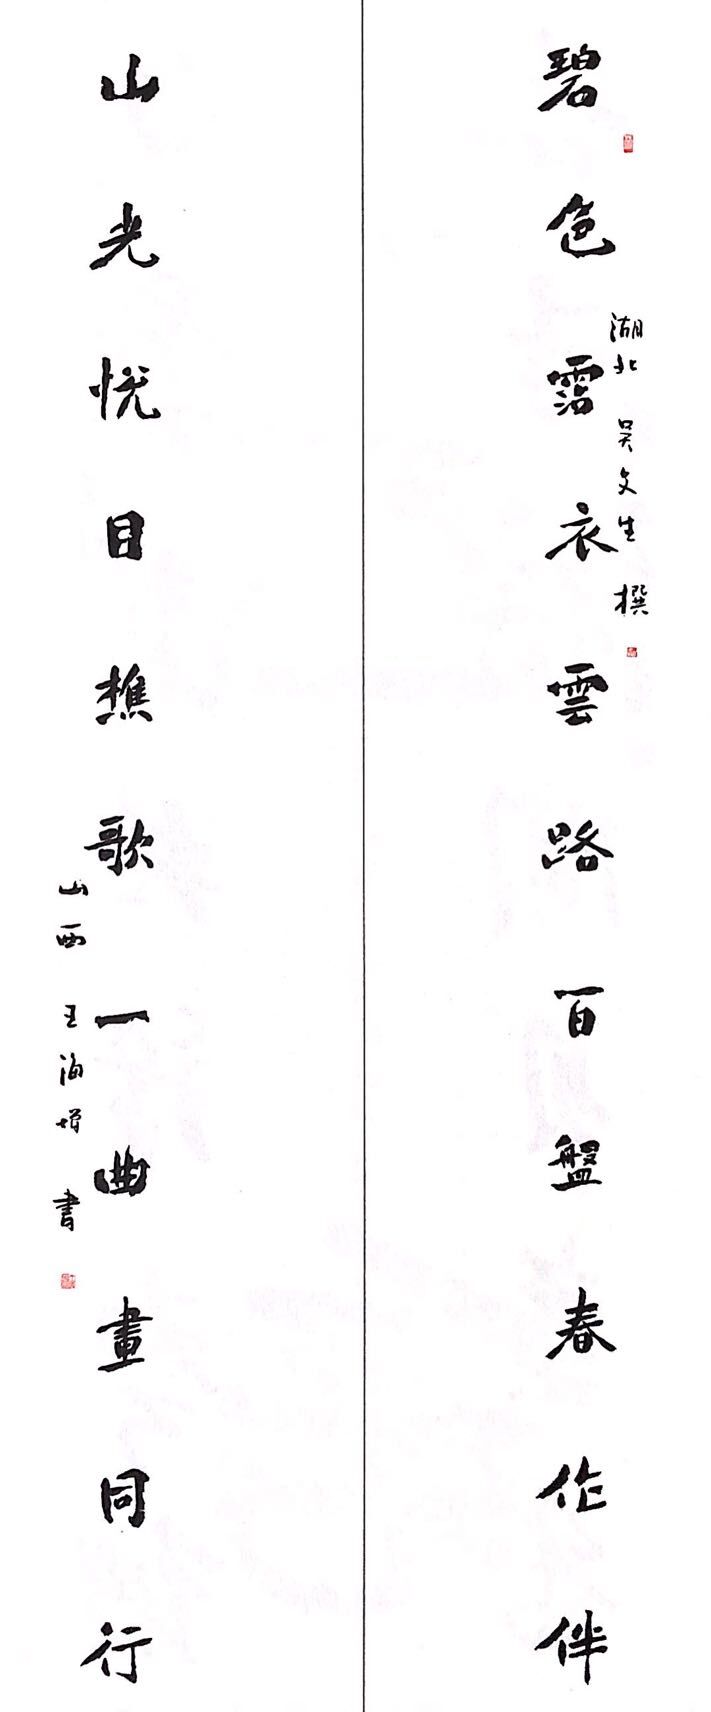 碧色霑衣雲路百盤春作伴
湖北 吴文生 撰
山光悦目樵歌一曲畫同行
山西 王海增 書